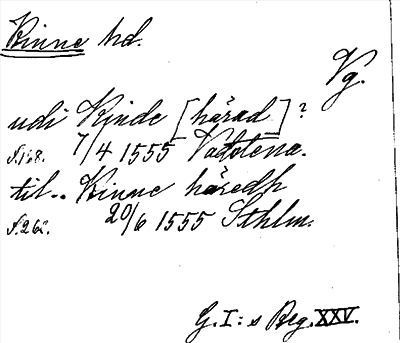 Kinne hd.
Vg.
udi Kinde [härad]?
s. 168. 7/4 1555 Vadstena.
til.. Kinne häredh
s. 262. 20/6 1555 Sthlm.
G. I:s Reg. XXV.